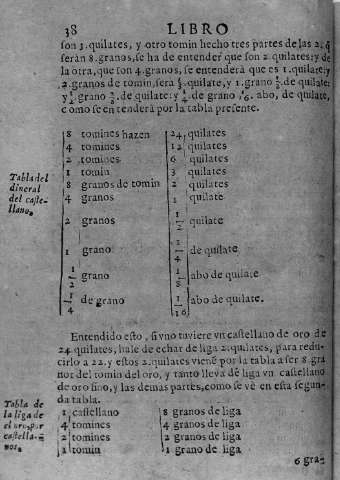 38 LIBRO
son 3. quilates, y otro tomin hecho tres partes de las 2. q̃
serán 8. granos, se ha de entender que son 2. quilates: y de
la otra, que son 4. granos, se entenderá que es 1. quilate: y
2. granos de tomin, será 1/2. quilate, y 1. grano de quilate:
y 1/2 grano de quilate: y 1/4 de grano abo, de quilate,
como se entenderá por la tabla presente.
Tabla del
dineral
del caste-
llano.
8 tomines hazen 24 quilates
4 tomines 12 quilates
2 tomines 6 quilates
1 tomin 3 quilates
8 granos de tomin 2 quilates
4 granos 1 quilate
2 granos 1/2 quilate
1 grano 1/4 de quilate
1/2 grano 1/8 abo de quilate
1/4 de grano 1/16 abo de quilate.
Entendido esto, si vno tuviere vn castellano de oro de
24. quilates, hale de echar de liga 2. quilates, para redu-
cirlo a 22. y estos 2. quilates viene por la tabla a ser 8. gra
nos del tomin del oro, y tanto lleva de liga vn castellano
de oro fino, y las demas partes, como se vè en esta segun-
da tabla.
Tabla de
la liga de
el oro, por
castella-
nos.
1 castellano 8 granos de liga
4 tomines 4 granos de liga
2 tomines 2 granos de liga
1 tomin 1 grano de liga
6 gra-